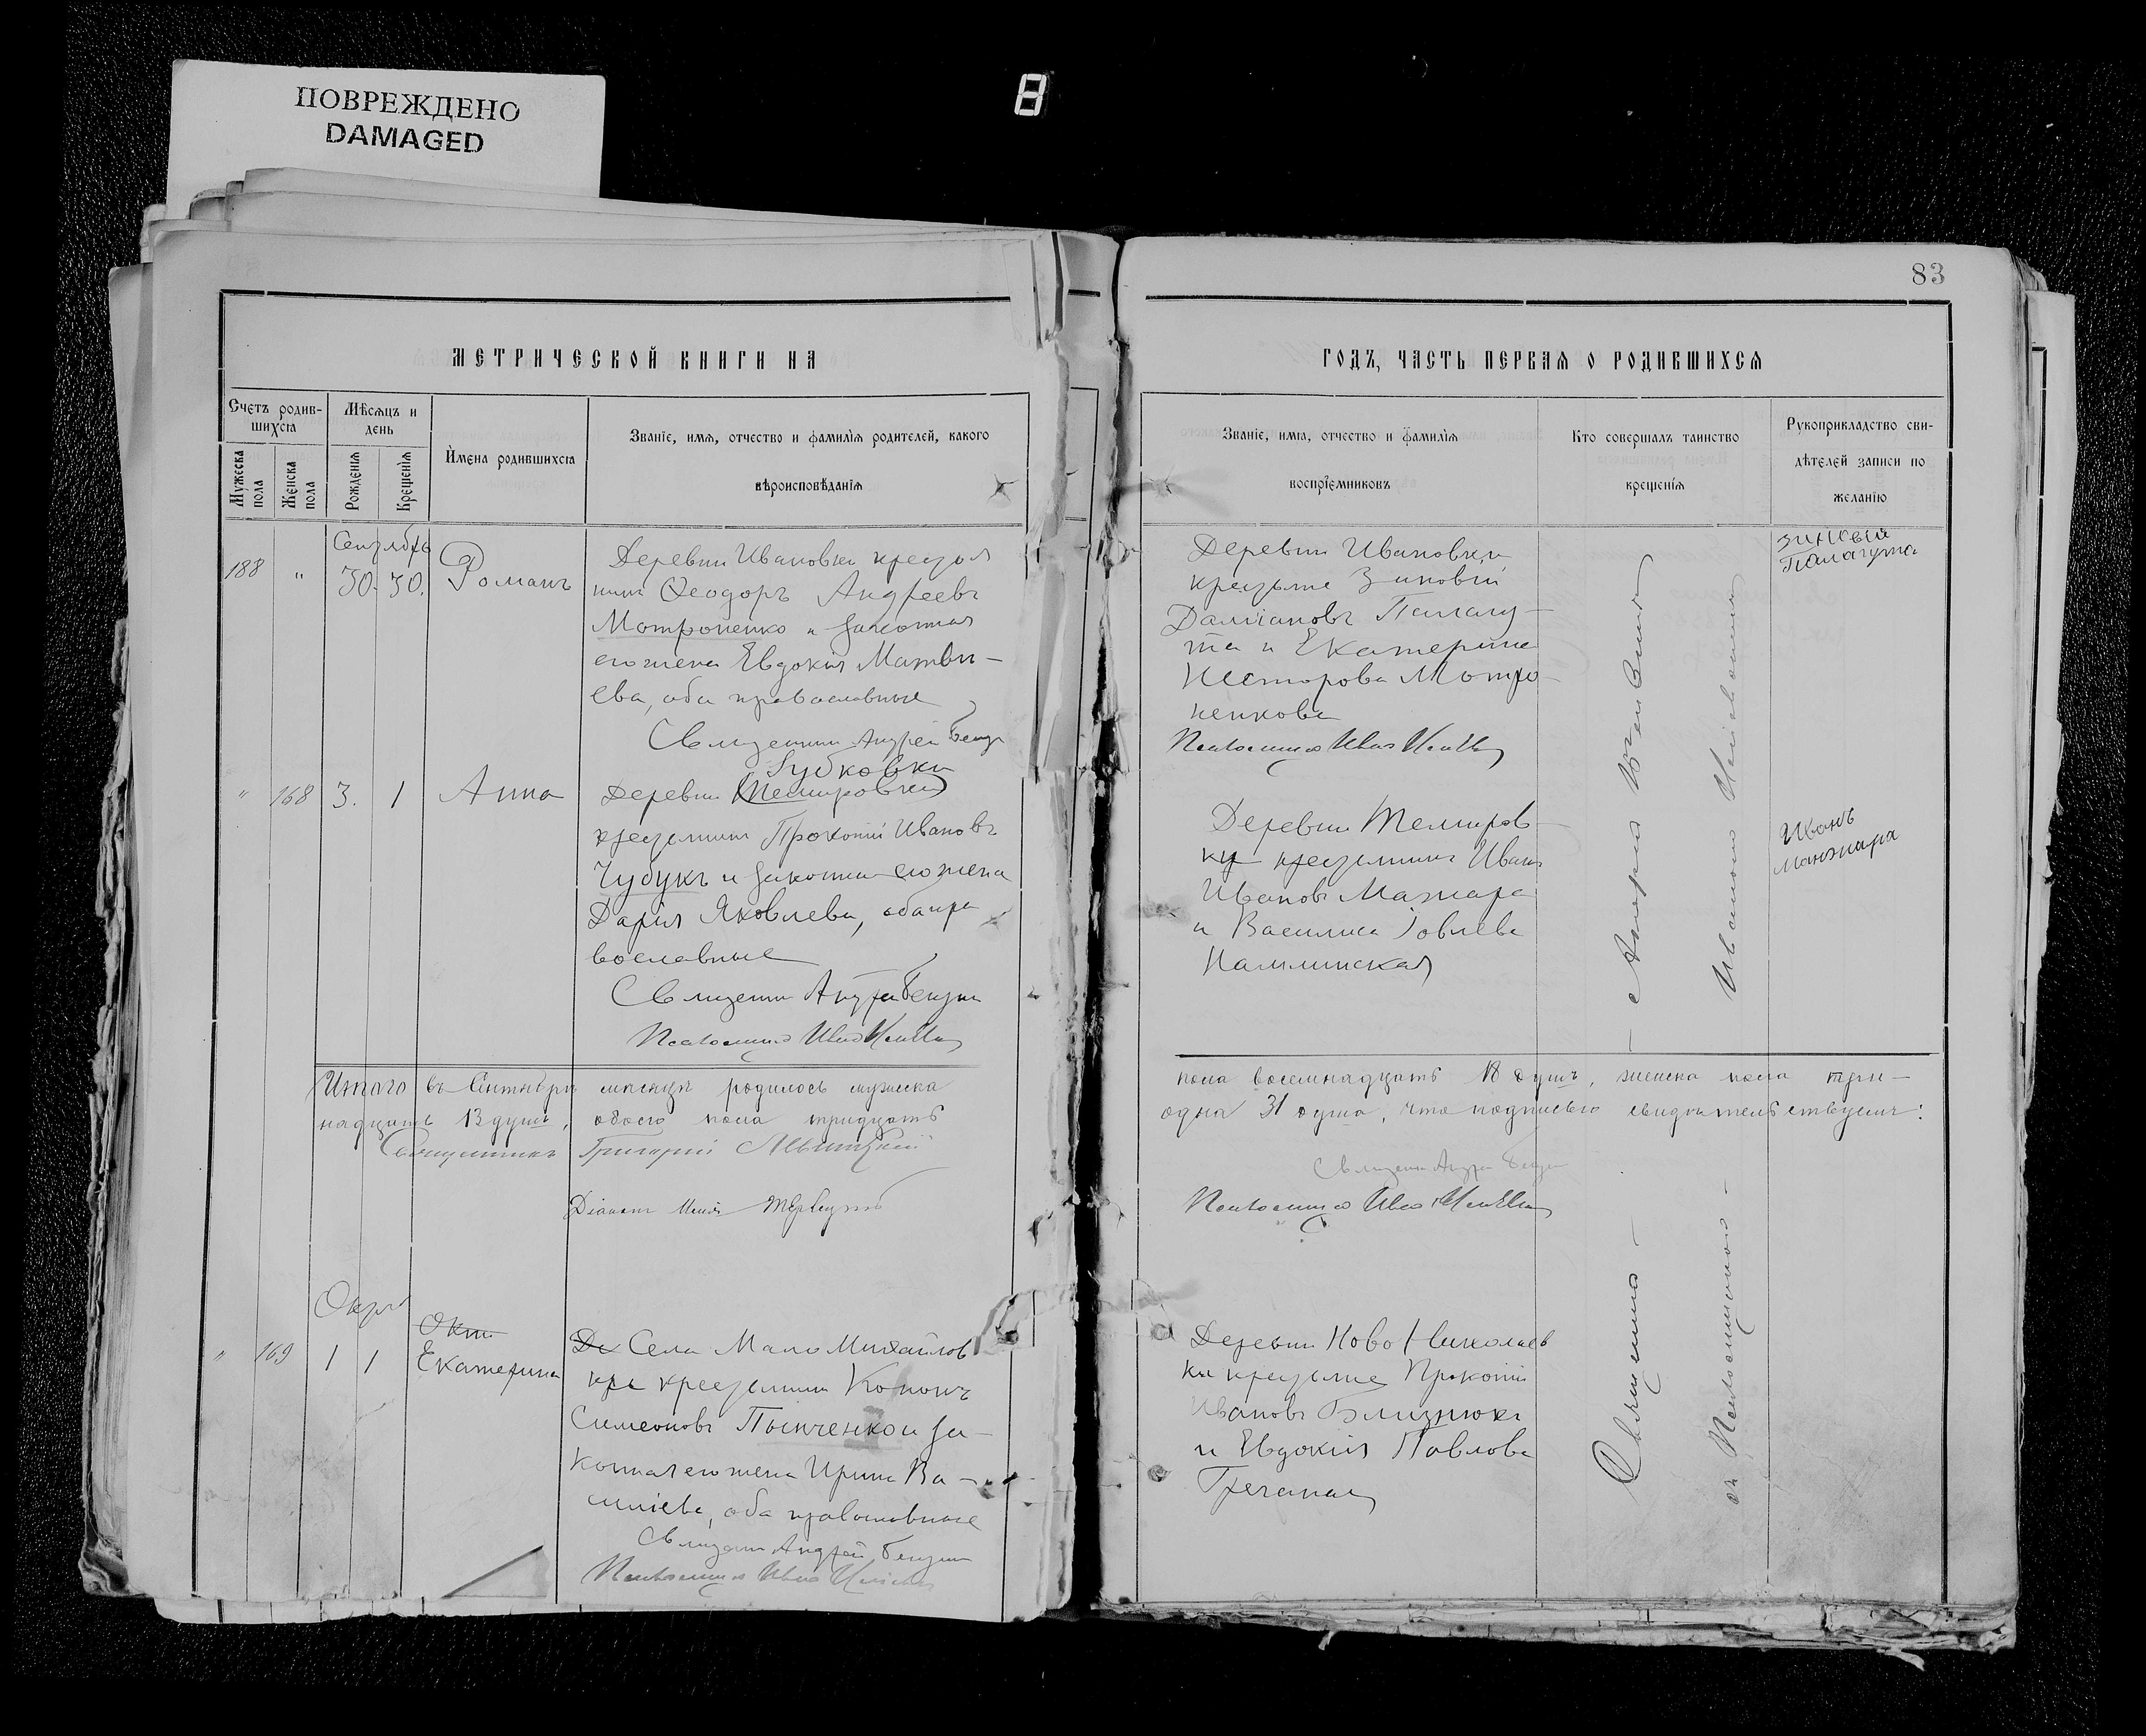 ПОВРЕЖДЕНО
DAMAGED
8
83
МЕТРИЧЕСКОЙ КНИГИ НА
ГОДЪ, ЧАСТЬ ПЕРВАЯ О РОДИВШИХСЯ
Счетъ родив-
шихся
Мужеска пола
Женска пола
Мѣсяцъ и
день
Рожденія
Крещенія
Имена родившихся
Званіе, имя, отчество и фамилія родителей, какого
вѣроисповѣданія
Званіе, имя, отчество и фамилія
воспріемниковъ
Кто совершалъ таинство
крещенія
Рукоприкладство сви-
дѣтелей записи по
желанію
188 " 30. 30. Романъ
Деревни Ивановки крестья
нинъ Ѳеодоръ Андреевъ
Мотроненко и законная
его жена Евдокія Матви-
ева, оба православные
Священникъ Андрей
Деревни Ивановки
крестьяне Зиновій
Даміановъ Палагу-
та и Екатерина
Несторова Мотро-
ненкова
Псаломщикъ Иванъ
Зиновій
Палагута
" 168 3. 1 Анна
Зубковки
Деревни Темировки
крестьянинъ Прокопій Ивановъ
Чубукъ и законная его жена
Дарія Яковлева, оба пра
вославные
Священникъ Андрей
Псаломщикъ Иванъ
Деревни Темиров-
ки крестьянинъ Иванъ
Ивановъ Мажара
и Василиса
Иванъ
Манжара
Итого въ Сентябрѣ мѣсяцѣ родилось мужеска
пола восемнадцать 18 душъ, женска пола три-
надцать 13 душъ, обоего пола тридцать
одна 31 душа, что подписью свидѣтельствуемъ:
Священникъ Григорій
Діаконъ
Священникъ Андрей
Псаломщикъ Иванъ
" 169 1 1 Екатерина
Села Мало Михайлов
ки крестьянинъ Кононъ
Симеоновъ и за-
конная его жена Ирина Ва-
силіева, оба православные
Священникъ Андрей
Псаломщикъ Иванъ
Деревни Ново Николаев
ки крестьяне Прокопій
Ивановъ Близнюкъ
и Евдокія Павлова
Гречаная
Священникъ
Псаломщикъ